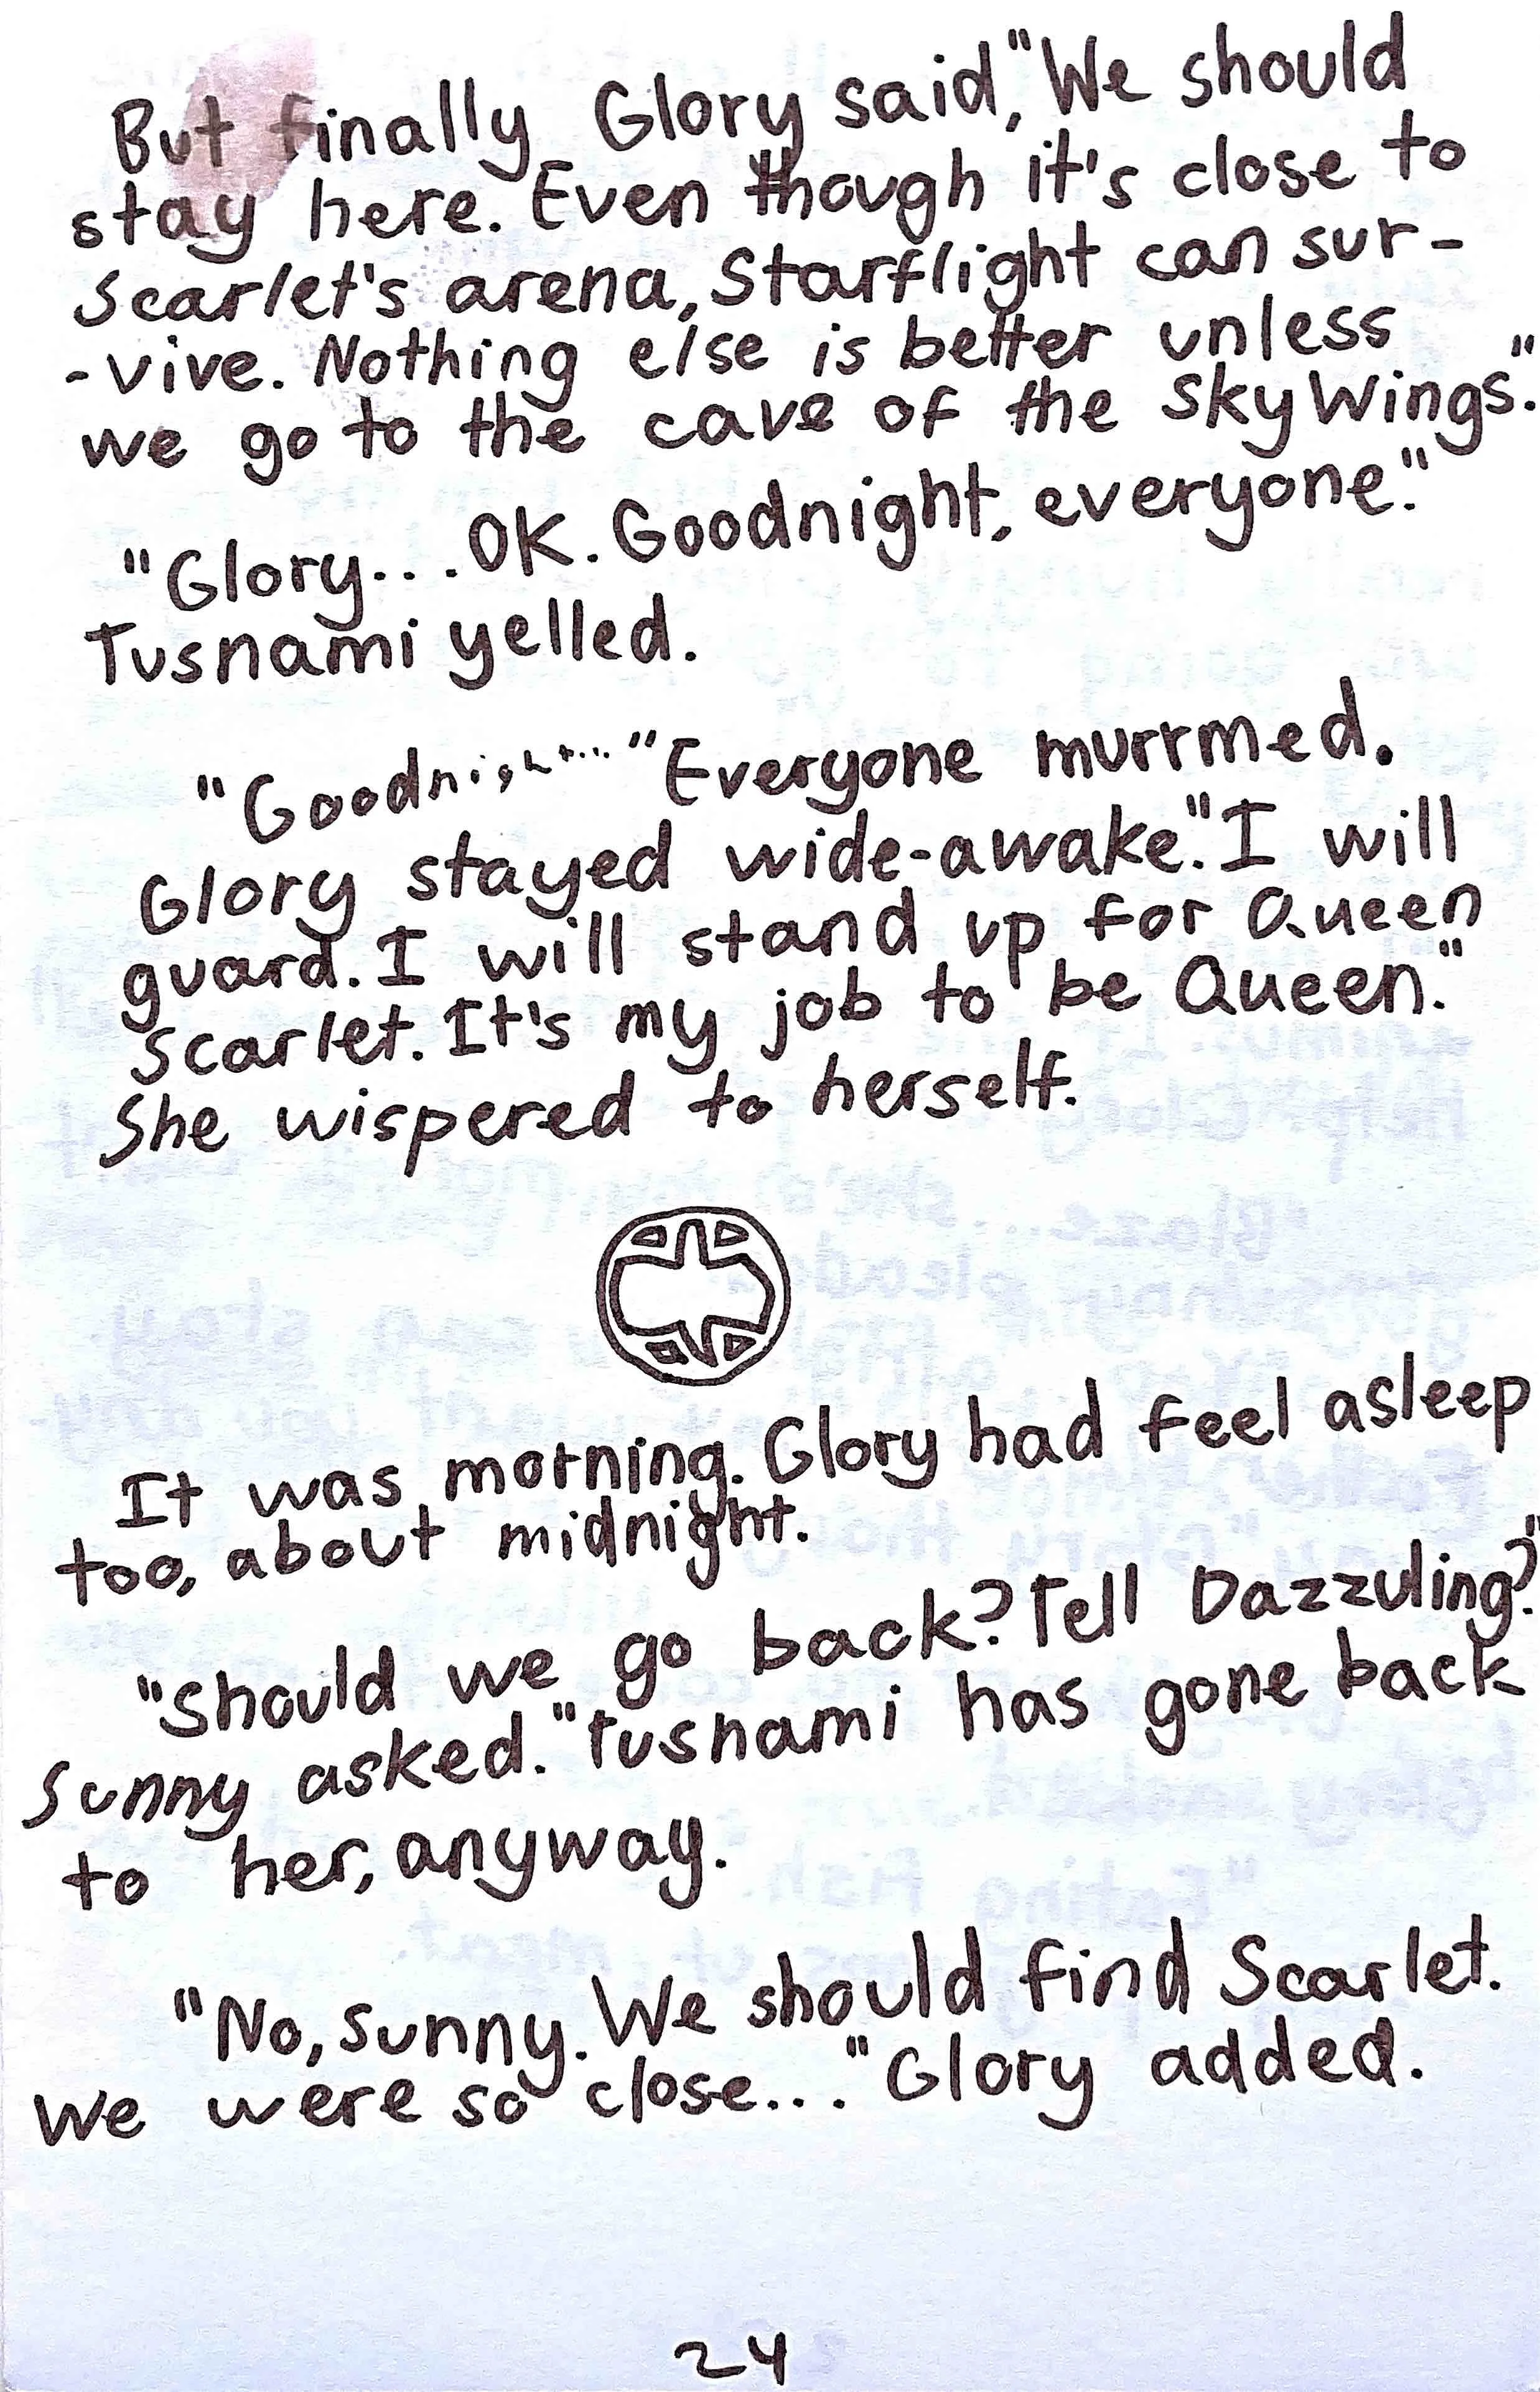 But finally Glory said, "We should
stay here. Even though it's close to
Scarlet's arena, Starflight can sur-
-vive. Nothing else is better unless
we go to the cave of the SkyWings."
"Glory... OK. Goodnight, everyone."
Tusnami yelled.
"Goodnight..." Everyone murrmed.
Glory stayed wide-awake. "I will
guard. I will stand up for Queen
Scarlet. It's my job to be Queen."
She wispered to herself.
It was morning. Glory had feel asleep
too, about midnight.
"Should we go back? Tell Dazzuling?"
Sunny asked. "Tusnami has gone back
to her, anyway.
"No, Sunny. We should find Scarlet.
We were so close..." Glory added.
24